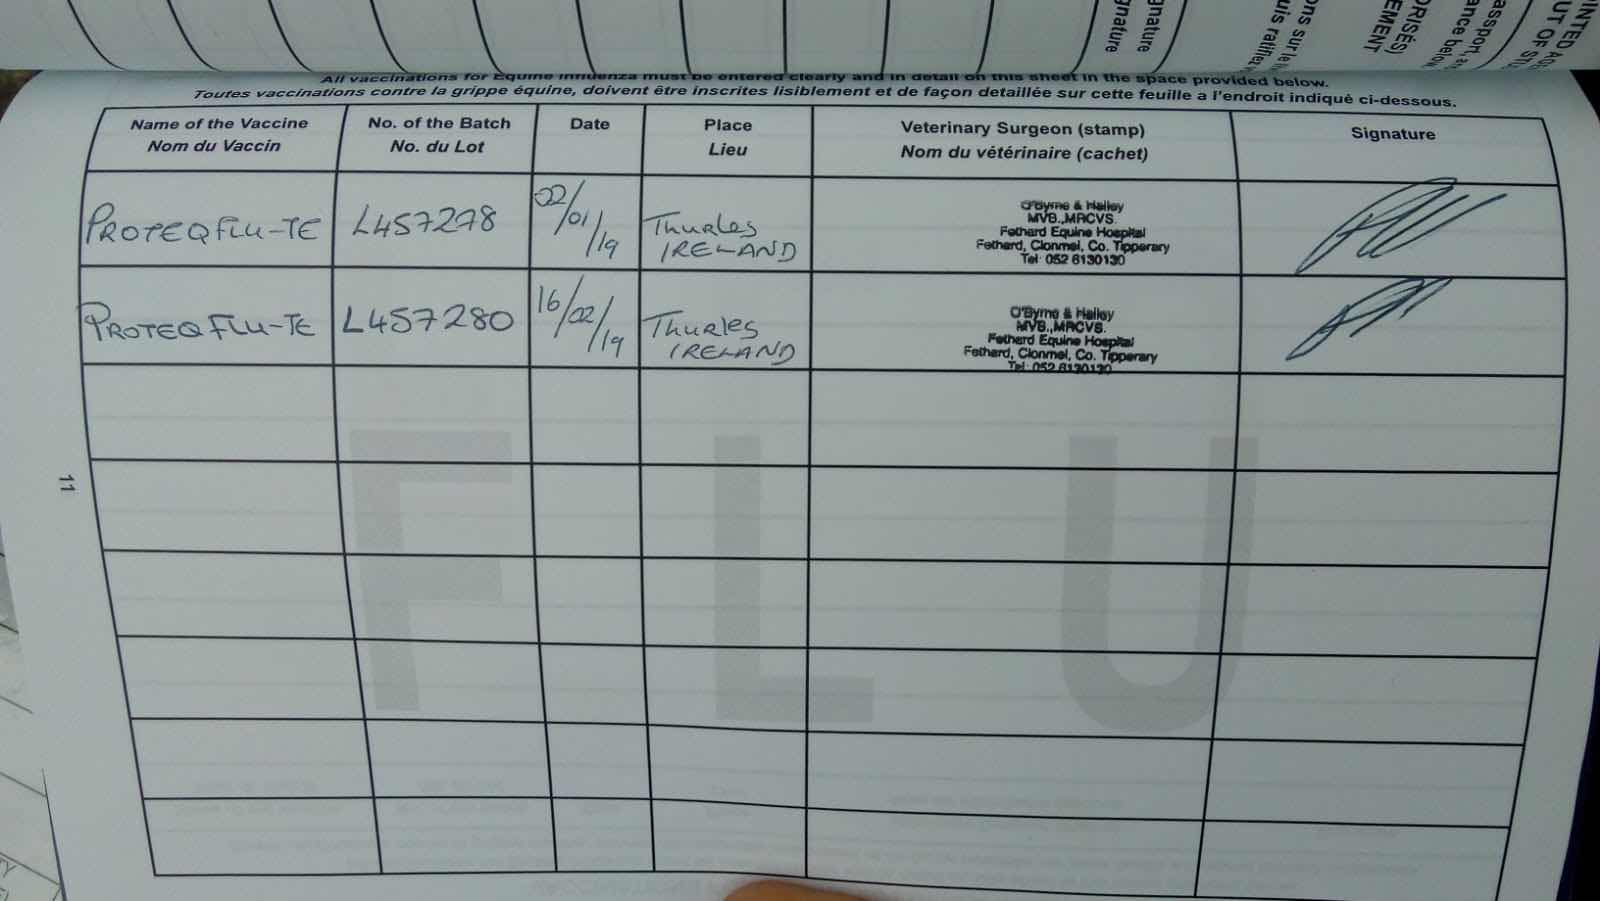 gnature
gnature
All vaccinations for Equine Influenza must be entered clearly and in detail on this sheet in the space provided below.
Toutes vaccinations contre la grippe équine, doivent être inscrites lisiblement et de façon detaillée sur cette feuille a l'endroit indiqué ci-dessous.
Name of the Vaccine No. of the Batch Date Place Veterinary Surgeon (stamp) Signature
Nom du Vaccin No. du Lot Lieu Nom du vétérinaire (cachet)
PROTEQFLU-TE L457278 02/01/19 Thurles IRELAND
O'Byrne & Halley
MVB.,MRCVS.
Fethard Equine Hospital
Fethard, Clonmel, Co. Tipperary
Tel: 052 6130130
PROTEQFLU-TE L457280 16/02/19 Thurles IRELAND
O'Byrne & Halley
MVB.,MRCVS.
Fethard Equine Hospital
Fethard, Clonmel, Co. Tipperary
Tel: 052 6130130
FLU
11